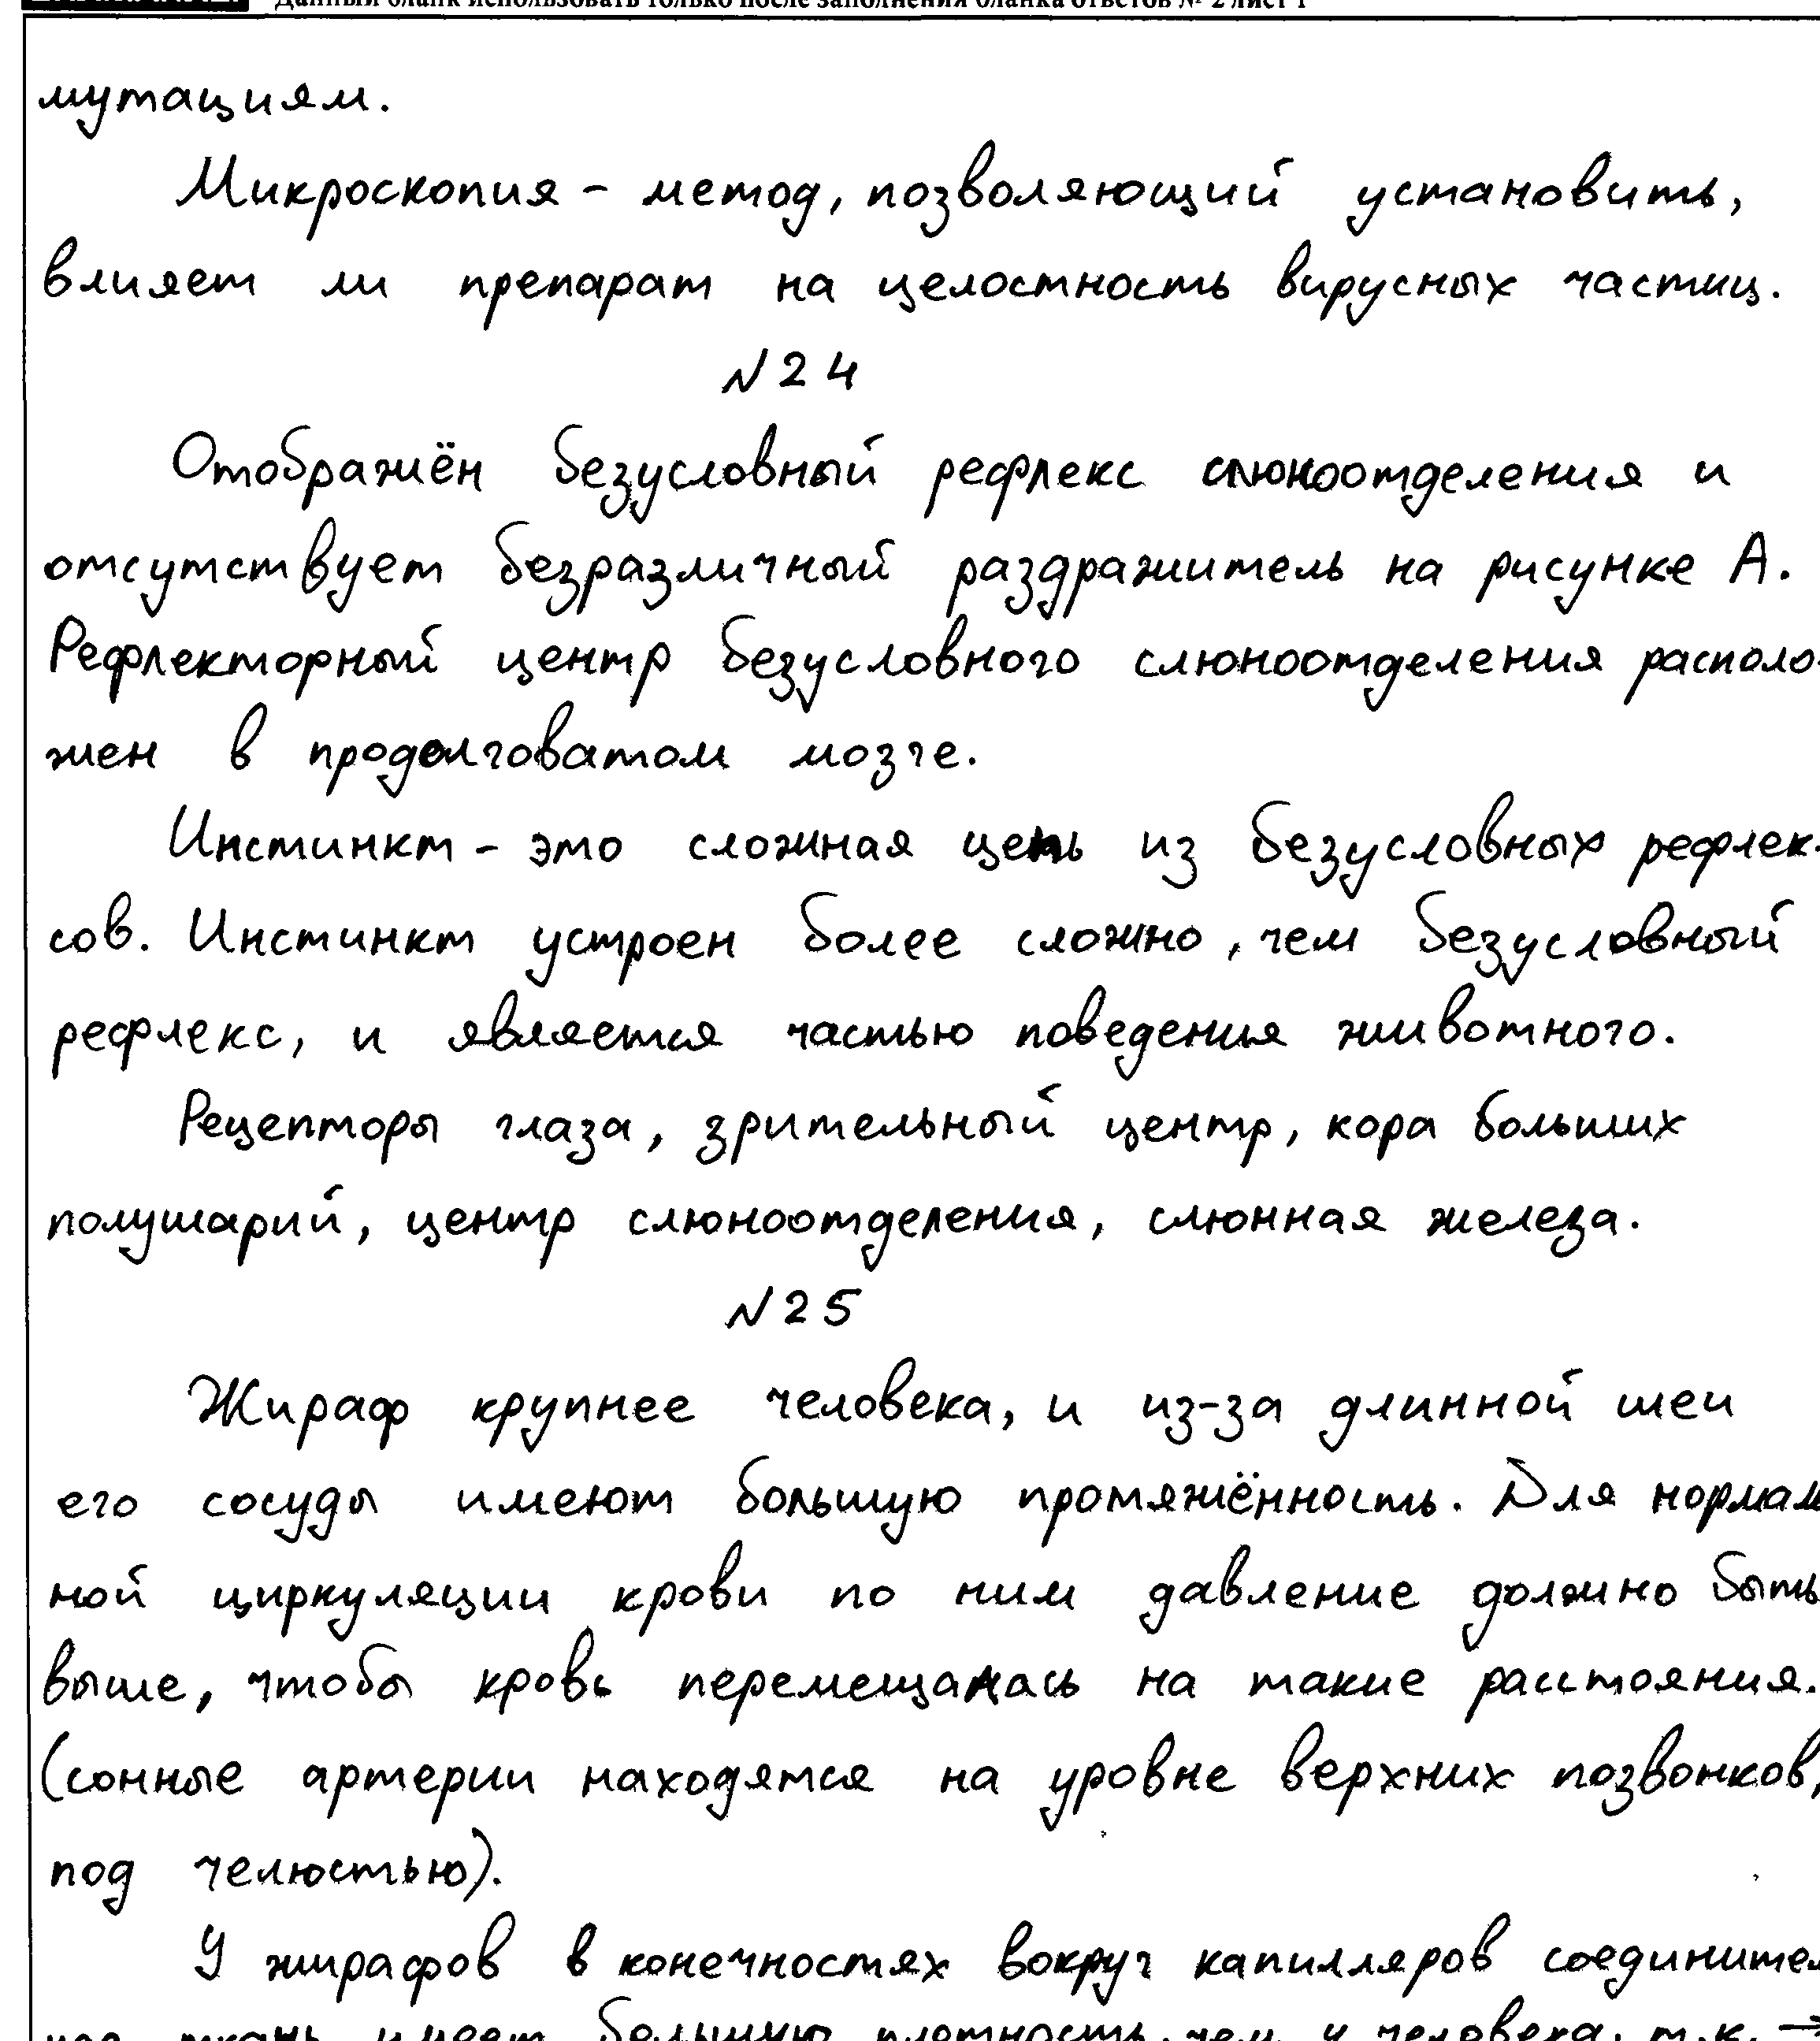 Данный бланк использовать только после заполнения бланка ответов № 2 лист 1
мутациям.
Микроскопия - метод, позволяющий установить,
влияет ли препарат на целостность вирусных частиц.
N24
Отображён безусловный рефлекс слюноотделения и
отсутствует безразличный раздражитель на рисунке А.
Рефлекторный центр безусловного слюноотделения располо-
жен в продолговатом мозге.
Инстинкт - это сложная цепь из безусловных рефлек-
сов. Инстинкт устроен более сложно, чем безусловный
рефлекс, и является частью поведения животного.
Рецепторы глаза, зрительный центр, кора больших
полушарий, центр слюноотделения, слюнная железа.
N25
Жираф крупнее человека, и из-за длинной шеи
его сосуды имеют большую протяжённость. Для нормаль
ной циркуляции крови по ним давление должно быть
выше, чтобы кровь перемещалась на такие расстояния.
(сонные артерии находятся на уровне верхних позвонков,
под челюстью).
У жирафов в конечностях вокруг капилляров соединител
ткань имеет большую плотность, чем у человека, т.к.